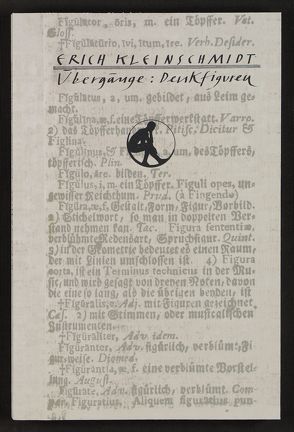 Figulator, ōris, m. ein Töpffer. Vet.
Gloss.
†Figulaturio, ivi, itum, ire. Verb. Desider.
ERICH KLEINSCHMIDT
Übergänge: Denkfiguren
Figulatus, a, um. gebildet, aus Leim ge-
macht.
Figulina, æ, f. eine Töpfferwerkstatt. Varro.
2) das Töpfferhandwerk. Dicitur &
Figlina.
Figulinus, & Fig a, um. des Töpffers,
töpfferisch. Plin.
Figulo, āre. bilden, Ter.
Figulus, i, m. ein Töpffer. Figuli opes, un-
gewisser Reichthum. Prud. (à Fingendo)
Figura, æ, f. Gestalt, Form, Figur, Vorbild.
2) Stichelwort, so man in doppelten Ver-
stand nehmen kan. Tac. Figura sententiæ,
verblühmte Redensart, Spruchfigur. Quint.
3) in der Geometrie bedeutet es einen Raum,
der mit Linien umschlossen ist. 4) Figura
corta, ist ein Terminus technicus in der Mu-
sic, und wird gesagt von dreyen Noten, davon
die eine so lang, als die übrigen benden, ist
†Figuralis, e. Adj. mit Figuren gezeichnet
Cæs. 2) mit Stimmen, oder musicalischen
Instrumenten.
†Figuraliter, Adv. idem.
Figuranter, Adv. figürlich, verblümt, Fi-
gur-weise. Diomed.
†Figurantia, æ, f. eine verblümte Vorstel-
lung. August.
Figurate, Adv. figürlich, verblümt. Com-
par. Figuratius. Aliquem figuratius pun-